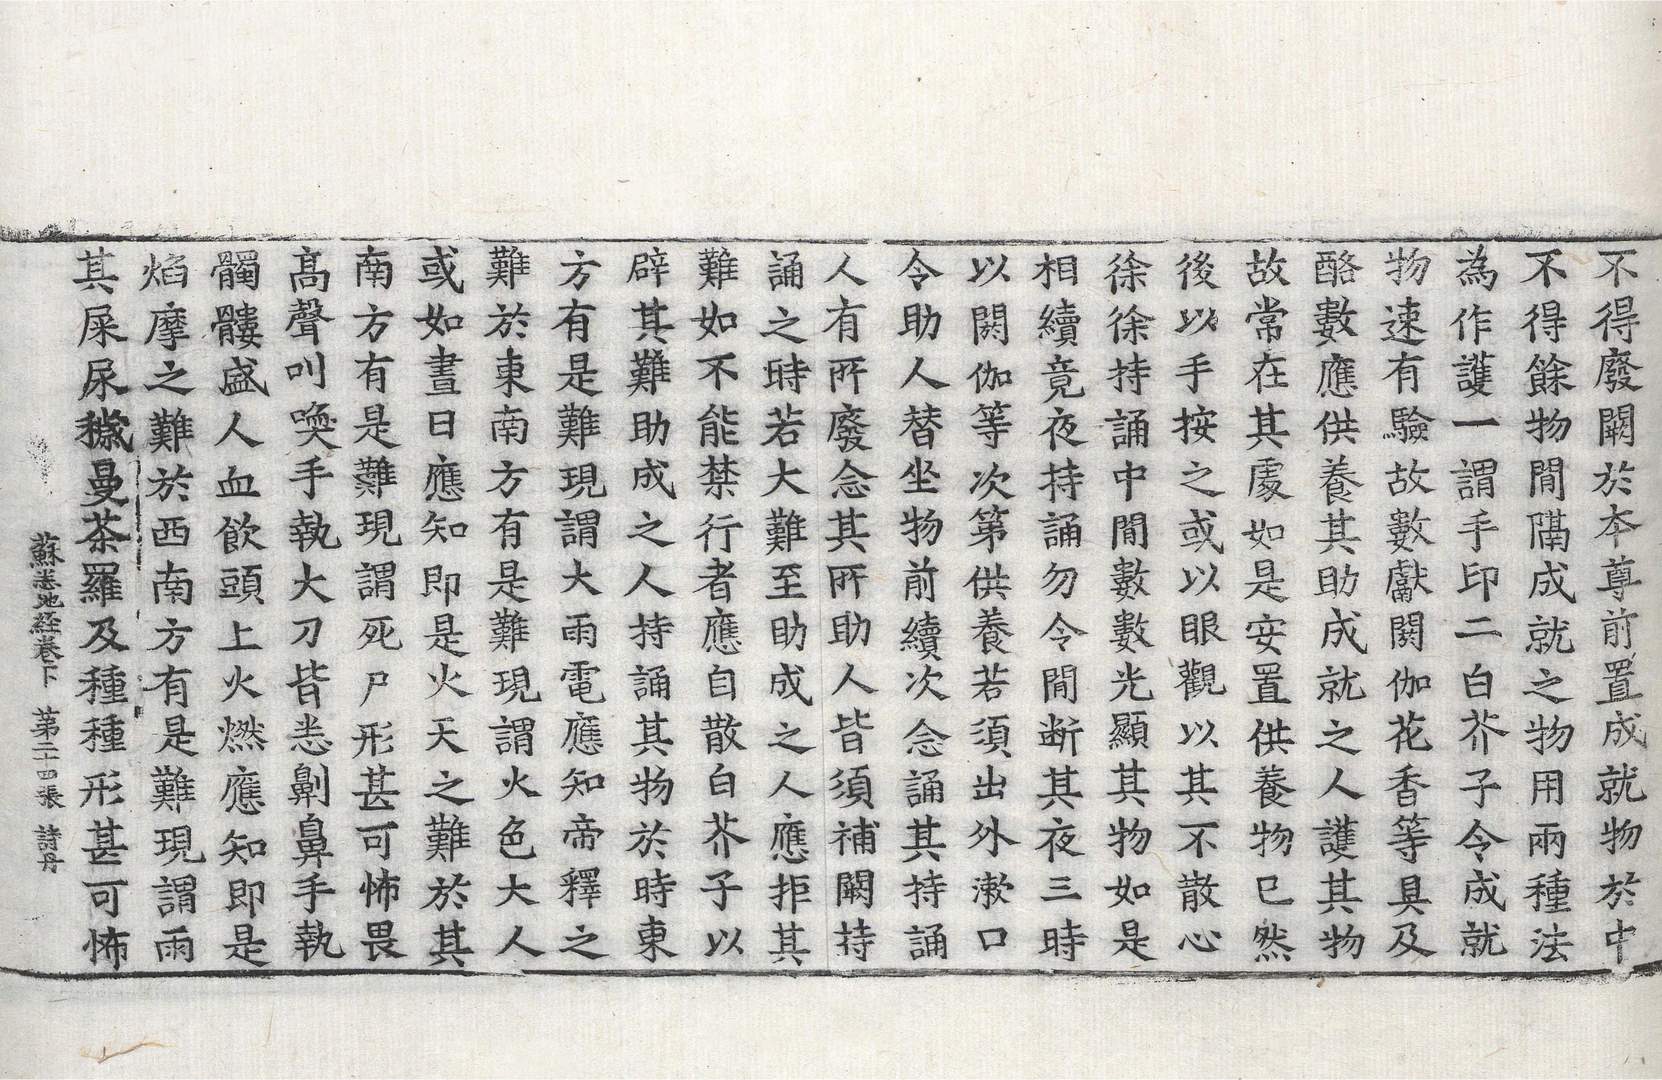 不得廢闕於本尊前置成就物於中
不得餘物閒隔成就之物用兩種法
為作護一謂手印二白芥子令成就
物速有驗故數獻閼伽花香等具及
酪數應供養其助成就之人護其物
故常在其處如是安置供養物已然
後以手按之或以眼觀以其不散心
徐徐持誦中閒數數光顯其物如是
相續竟夜持誦勿令閒断其夜三時
以閼伽等次第供養若須出外漱口
令助人替坐物前續次念誦其持誦
人有所廢念其所助人皆須補闕持
誦之時若大難至助成之人應拒其
難如不能禁行者應自散白芥子以
辟其難助成之人持誦其物於時東
方有是難現謂大雨電應知帝釋之
難於東南方有是難現謂火色大人
或如晝日應知即是火天之難於其
南方有是難現謂死尸形甚可怖畏
高聲叫喚手執大刀皆悉劓鼻手執
髑髏盛人血飲頭上火燃應知即是
焰摩之難於西南方有是難現謂雨
其屎尿穢曼荼羅及種種形甚可怖
蘇悉地経卷下 第二十四張 詩丹